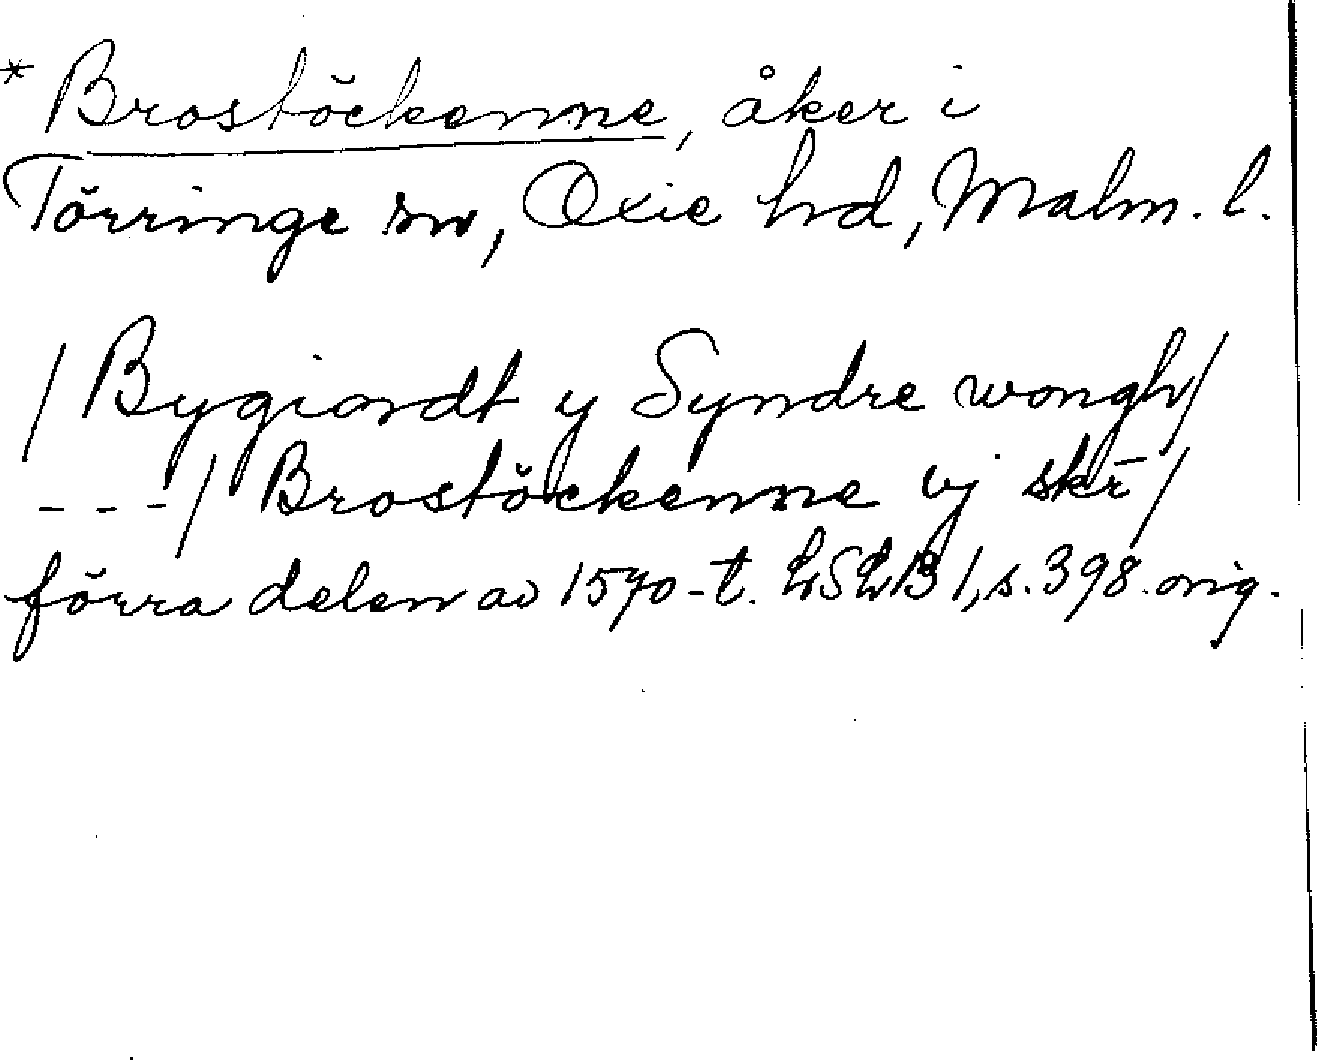 * Brostöckenne, åker i
Törringe sn, Oxie hd, Malm. l.
/Bygiordt y Syndre wongh/
---/ Brostöckenne vj skr̄/
förra delen av 1570-t. LSLB 1, s. 398. orig.